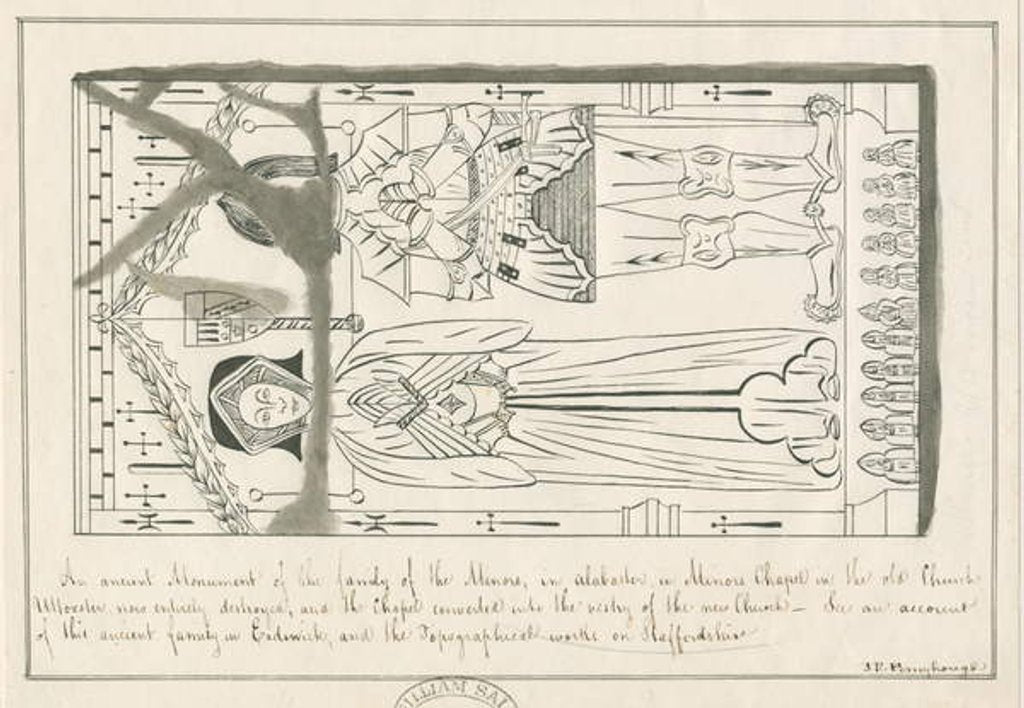 An ancient Monument of the family of the Minors, in alabaster in Minors Chapel in the old Church
Uttoxeter now entirely destroyed, and the Chapel converted into the vestry of the new Church – See an account
of this ancient family in Erdswick, and the Topographical works on Staffordshire
WILLIAM SAL